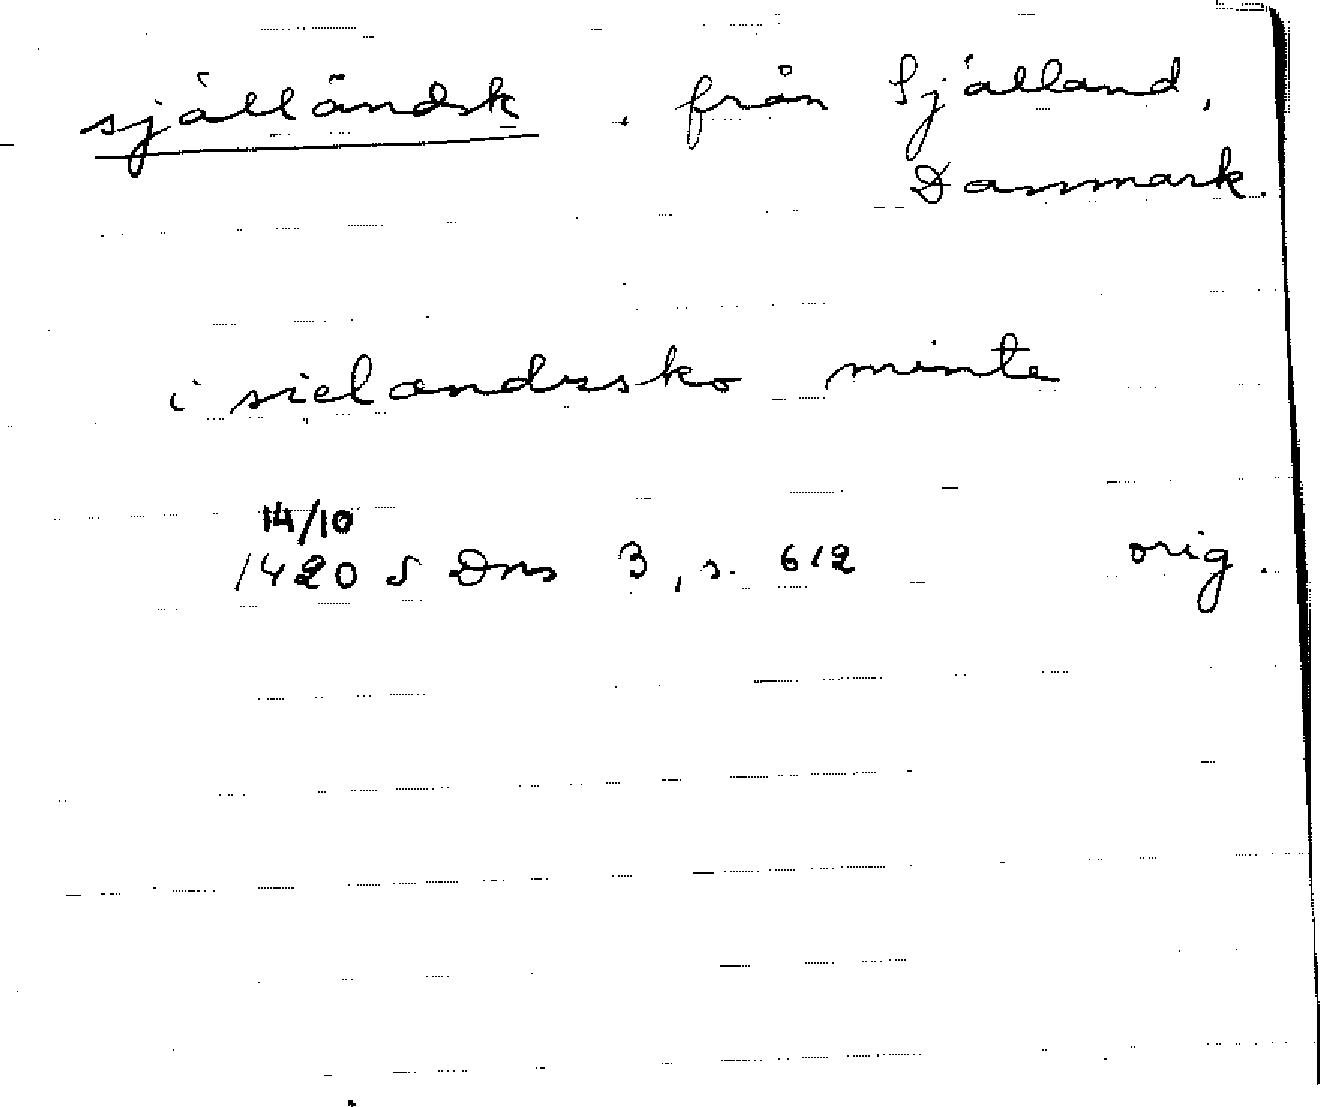 själländsk . från Själland,
Danmark.
i sielandzsko minte
14/10
1420 S Dns 3, s. 612 orig.